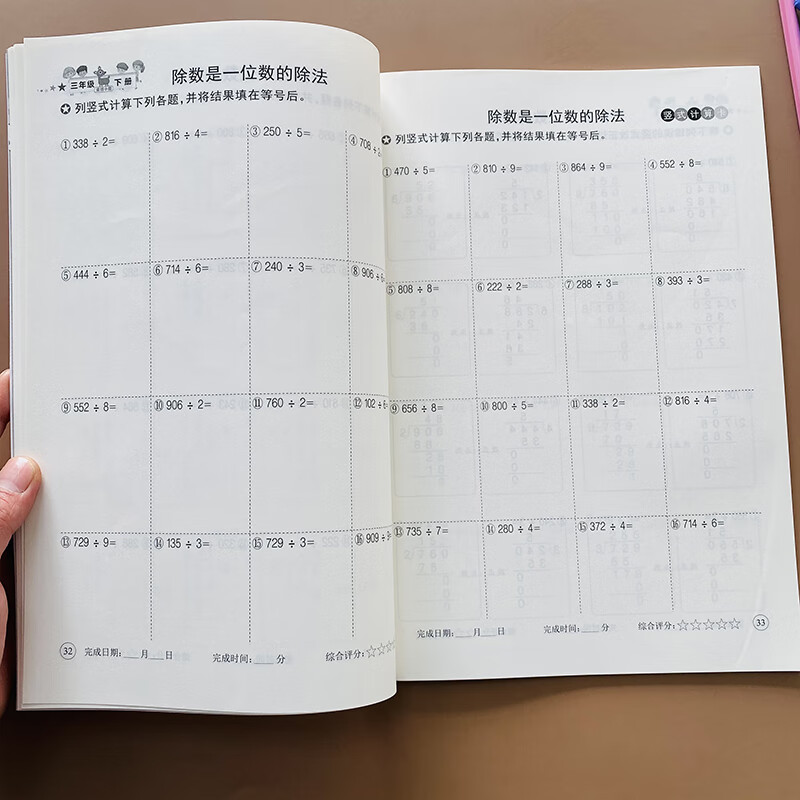 三年级 下册
除数是一位数的除法
列竖式计算下列各题,并将结果填在等号后。
①338 ÷ 2= ②816 ÷ 4= ③250 ÷ 5= ④708 ÷
⑤444 ÷ 6= ⑥714 ÷ 6= ⑦240 ÷ 3= ⑧906 ÷
⑨552 ÷ 8= ⑩906 ÷ 2= ⑪760 ÷ 2= ⑫102 ÷
⑬729 ÷ 9= ⑭135 ÷ 3= ⑮729 ÷ 3= ⑯909 ÷
32 完成日期:___月___日 完成时间:___分 综合评分:☆☆☆
除数是一位数的除法 竖式计算卡
列竖式计算下列各题,并将结果填在等号后。
①470 ÷ 5= ②810 ÷ 9= ③864 ÷ 9= ④552 ÷ 8=
⑤808 ÷ 8= ⑥222 ÷ 2= ⑦288 ÷ 3= ⑧393 ÷ 3=
⑨656 ÷ 8= ⑩800 ÷ 5= ⑪338 ÷ 2= ⑫816 ÷ 4=
⑬735 ÷ 7= ⑭280 ÷ 4= ⑮372 ÷ 4= ⑯714 ÷ 6=
完成日期:___月___日 完成时间:___分 综合评分:☆☆☆☆☆ 33